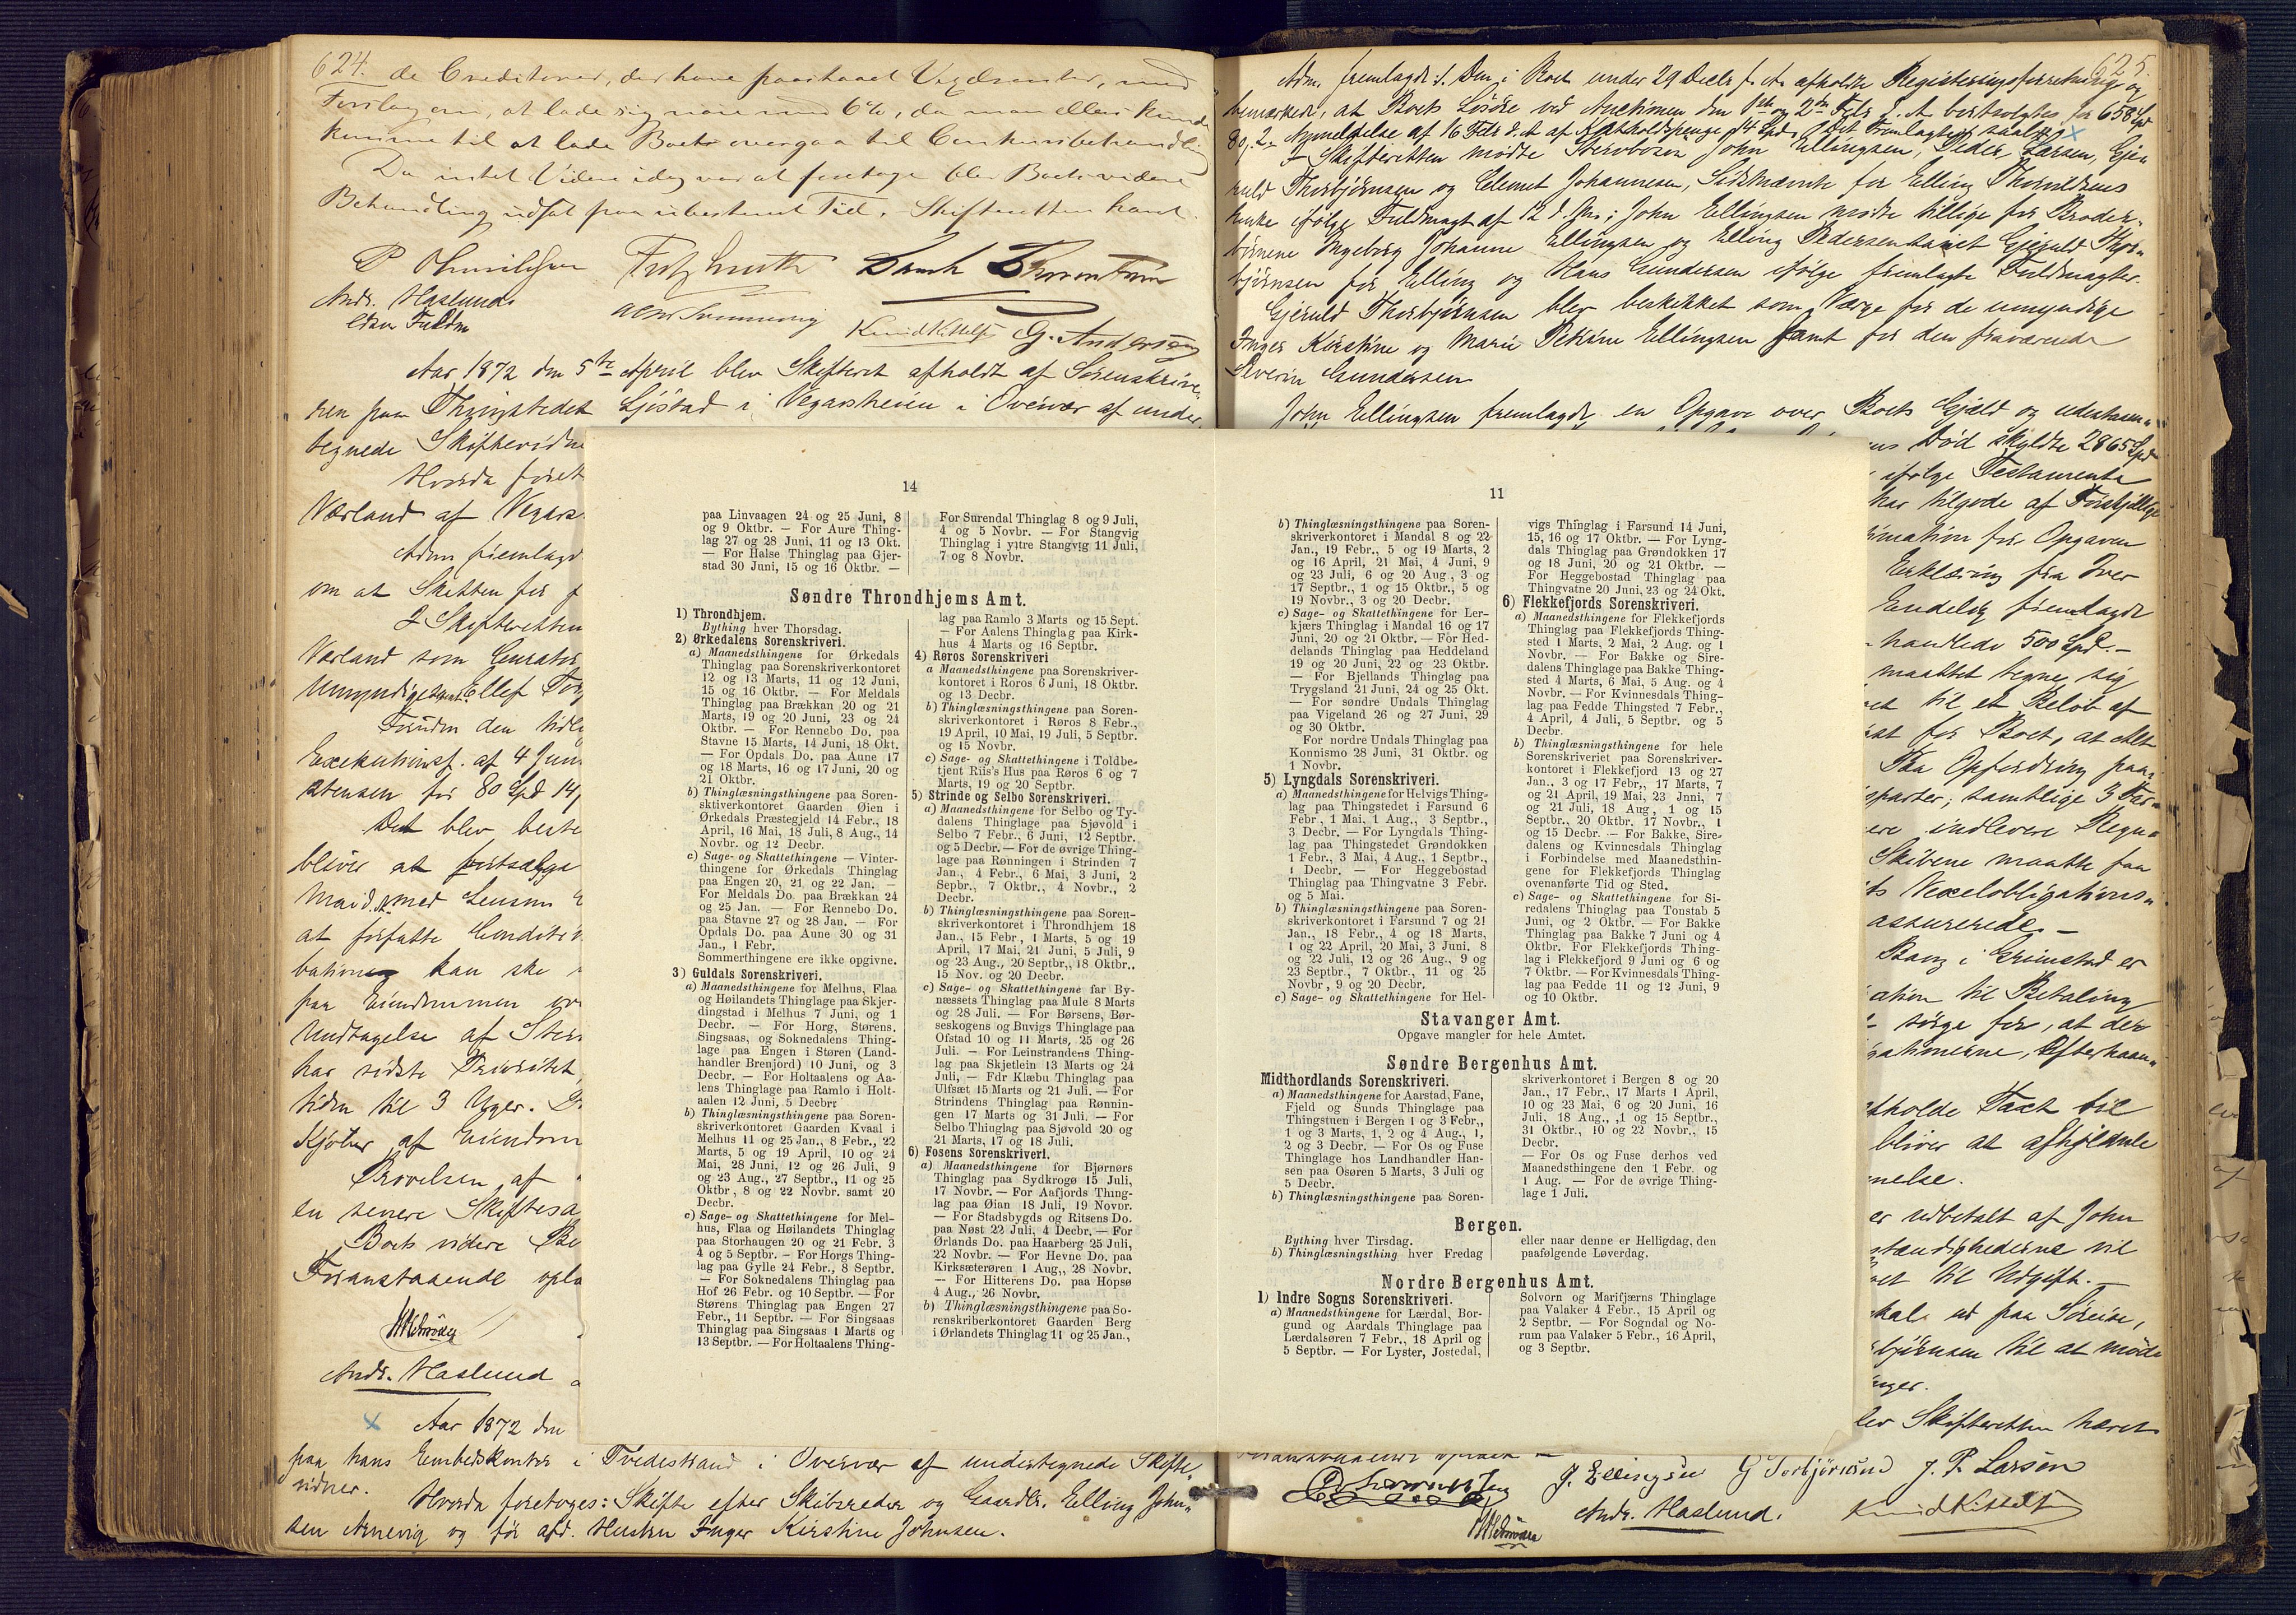 624.
de Creditorer, der have paastaaet Vexelrenter, med
Forslag om, at lade sig nøie med 6%, da man ellers kunde
komme til at lade Boets overgaa til Concursbehandling
Da intet Videre idag var at foretage blev Boets videre
Behandling udsat paa ubestemt Tid. Skifteretten hævet.
Andr. Haslund
Knud Kittelsen G. Andersen
Aar 1872 den 5te April blev Skifteret afholdt af Sorenskrive-
ren paa Thingstedet Sjöstad i Vegarsheien i Overvær af under-
tegnede Skiftevidne
Hvorda foret
Værland af Vegars
Adm fremlagd
om at Skiften for
I Skifteretten
Værland som Curator
Umyndige samt Ellef
Foruden den tidl
Executionsf. af 4 Juni
stensen for 80 Spd 14
Det blev beste
bliver at fortsælge
Maid. med Lensm
at forfatte Condition
bationen kan ske
paa Eiendommen
Undtagelse af
har sidste Prioritet,
tiden til 3 Uger.
Kjöber af Eiendom
Prøvelsen af
en senere Skiftesa
Boets videre Be
Foranstaaende oplæ
Andr. Haslund
x Aar 1872 den
paa hans Embedskontor i Tvedestrand i Overvær af undertegnede Skifte-
vidner.
Hvorda foretoges: Skifte efter Skibsreder og Gaardbr. Elling John-
sen Arnevig og før afd. Hustru Inger Kirstine Johnsen.
14
paa Linvaagen 24 og 25 Juni, 8
og 9 Oktbr. — For Aure Thing-
lag 27 og 28 Juni, 11 og 13 Okt.
— For Halse Thinglag paa Gjer-
stad 30 Juni, 15 og 16 Oktbr. —
For Surendal Thinglag 8 og 9 Juli,
4 og 5 Novbr. — For Stangvig
Thinglag i yttre Stangvig 11 Juli,
7 og 8 Novbr.
Søndre Throndhjems Amt.
1) Throndhjem.
Bything hver Thorsdag.
2) Ørkedalens Sorenskriveri.
a) Maanedsthingene for Ørkedals
Thinglag paa Sorenskriverkontoret
12 og 13 Marts, 11 og 12 Juni,
15 og 16 Oktbr. — For Meldals
Thinglag paa Brækkan 20 og 21
Marts, 19 og 20 Juni, 23 og 24
Oktbr. — For Rennebo Do. paa
Stavne 15 Marts, 14 Juni, 18 Okt.
— For Opdals Do. paa Aune 17
og 18 Marts, 16 og 17 Juni, 20 og
21 Oktbr.
b) Thinglæsningsthingene paa Soren-
sktiverkontoret Gaarden Øien i
Ørkedals Præstegjeld 14 Febr., 18
April, 16 Mai, 18 Juli, 8 Aug., 14
Novbr. og 12 Decbr.
c) Sage- og Skattethingene — Vinter-
thingene for Ørkedals Thinglag
paa Engen 20, 21 og 22 Jan. —
For Meldals Do. paa Brækkan 24
og 25 Jan. — For Rennebo Do.
paa Stavne 27 og 28 Jan. — For
Opdals Do. paa Aune 30 og 31
Jan., 1 Febr.
Sommerthingene ere ikke opgivne.
3) Guldals Sorenskriveri.
a) Maanedsthingene for Melhus, Flaa
og Høilandets Thinglage paa Skjer-
dingstad i Melhus 7 Juni, og 1
Decbr. — For Horg, Størens.
Singsaas, og Soknedalens Thing-
lage paa Engen i Støren (Land-
handler Brenjord) 10 Juni, og 3
Decbr. — For Holtaalens og Aa-
lens Thinglage paa Ramlo i Holt-
aalen 12 Juni, 5 Decbr.
b) Thinglæsningsthingene paa Soren-
skriverkontoret Gaarden Kvaal i
Melhus 11 og 25 Jan., 8 Febr., 22
Marts, 5 og 19 April, 10 og 24
Mai, 28 Juni, 12 og 26 Juli, 9
og 23 Aug., 27 Septbr., 11 og 25
Oktbr, 8 og 22 Novbr. samt 20
Decbr.
c) Sage- og Skattethingene for Mel-
hus, Flaa og Høilandets Thinglag
paa Storhaugen 20 og 21 Febr. 3
4 og 5 Septbr. — For Horgs Thing-
lag paa Gylle 24 Febr., 8 Septbr.
— For Soknedalens Thinglag paa
Hof 26 Febr. og 10 Septbr. — For
Størens Thinglag paa Engen 27
Febr., 11 Septbr. — For Singsaas
Thinglag paa Singsaas 1 Marts og
13 Septbr. — For Holtaalens Thing-
lag paa Ramlo 3 Marts og 15 Sept.
— For Aalens Thinglag paa Kirk-
hus 4 Marts og 16 Septbr.
4) Røros Sorenskriveri
a Maanedsthingene paa Sorenskriver-
kontoret i Roros 6 Juni, 18 Oktbr.
og 13 Decbr.
b) Thinglæsningsthingene paa Soren-
skriverkontoret i Røros 8 Febr.,
19 April, 10 Mai, 19 Juli, 5 Septbr.
og 15 Novbr.
c) Sage- og Skattethingene i Toldbe-
tjent Riis's Hus paa Røros 6 og 7
Marts, 19 og 20 Septbr.
5) Strinde og Selbo Sorenskriveri.
a) Maanedsthingene for Selbo og Ty-
dalens Thinglage paa Sjøvold i
Selbo 7 Febr., 6 Juni, 12 Septbr.
og 5 Decbr. — For de øvrige Thing-
lage paa Rønningen i Strinden 7
Jan., 4 Febr., 6 Mai, 3 Juni, 2
Sepbr., 7 Oktbr., 4 Novbr., 2
Decbr.
b) Thinglæsningsthingene paa Soren-
skriverkontoret i Throndhjem 18
Jan., 15 Febr, 1 Marts, 5 og 19
April, 17 Mai, 21 Juni, 5 Juli, 9
og 23 Aug., 20 Septbr,, 18 Oktbr..
15 Nov. og 20 Decbr.
c) Sage- og Skattethingene far By-
næssets Thinglag paa Mule 8 Marts
og 28 Juli. — For Børsens, Bør-
seskogens og Buvigs Thinglage paa
Ofstad 10 og 11 Marts, 25 og 26
Juli. — For Leinstrandens Thing-
lag paa Skjetlein 13 Marts og 24
Juli, — Fdr Klæbu Thinglag paa
Ulfsæt 15 Marts og 21 Juli. — For
Strindens Thinglag paa Rønnin-
gen 17 Marts og 31 Juli. — For
Selbo Thinglag paa Sjøvold 20 og
21 Marts, 17 og 18 Juli.
6) Fosens Sorenskriveri.
a) Maanedsthingene for Bjørnørs
Thinglag paa Sydkrogø 15 Juli,
17 Novbr. — For Aafjords Thing-
lag paa Øian 18 Juli, 19 Novbr.
— For Stadsbygds og Ritsens Do.
paa Nøst 22 Juli, 4 Decbr. — For
Ørlands Do. paa Haarberg 25 Juli,
22 Novbr. — For Hevne Do. paa
Kirksæterøren 1 Aug,, 28 Novbr.
— For Hitterens Do. paa Hopsø
4 Aug., 26 Novbr.
b) Thinglæsningsthingene paa So-
renskriberkontoret Gaarden Berg
i Ørlandets Thinglag 11 og 25 Jan.,
625.
Adm. fremlagde: 1. Den i Boet under 29 Decbr f. A. afholdte Registreringsforretning og
bemærkede, at Boets Løsöre ved Auctionen den 1ste og 2den Febr d. A. bortsolgtes for 658 Spd
80, 2. Anmeldelse af 16 Febr d. A. af Fattoldspenge 14 Spd. Det fremlagtes saal. x
I Skifteretten mødte Stervboson John Ellingsen, Peder Larsen, Gje-
ruld Thorbjörnsen og Clemet Johannesen, Sidstnævnte for Elling Thorvildsens
Enke ifølge Fuldmagt af 12 d. Ms; John Ellingsen mødte tillige for Broder-
börnene Ingeborg Johanne Ellingsen og Elling Pedersen samt Gjeruld Thor-
björnsen for Elling og Hans Gundersen ifølge fremlagte Fuldmagter.
Gjeruld Thorbjörnsen blev beskikket som Værge for de umyndige
Inger Kirstine og Marie Petrine Ellingsen samt for den fraværende
Severin Gundersen
John Ellingsen fremlagde en Opgave over Boets Gjæld og udestaaen-
Död skyldte 2865 Spd
ifølge Testamente
har tilgode af Forskjellige
for Opgaven
Erklæring fra Iver
Endelig fremlagde
handlede 500 Spd. —
maattet tegne sig
til et Beløb af
for Boet, at Alt
Paa Opfordring paa-
parter; samtlige 3 Par-
ere indlevere Regn-
Skibene maatte faa
Vexelobligationer-
assurerede. —
Bang i Grimstad er
ation til Betaling
sörge for, at der
gationerne, Efterhaan-
afholde Taxt til
bliver at afhjemle
nelse.
er udbetalt af John
stændighederne vil
til Udgift. —
skal ud paa Söreise,
björnsen til at møde
nger.
blev Skifteretten hævet
J. Ellingsen G Torbjörnsend J. P. Larsen
Andr. Haslund. Knud Kittelsen
11
b) Thinglæsningsthingene paa Soren-
skriverkontoret i Mandal 8 og 22
Jan., 19 Febr., 5 og 19 Marts, 2
og 16 April, 21 Mai, 4 Juni, 9
og 23 Juli, 6 og 20 Aug, 3 og
17 Septbr., 1 og 15 Oktbr., 5 og
19 Novbr., 3 og 20 Decbr.
c) Sage- og Skattethingene for Ler-
kjærs Thinglag i Mandal 16 og 17
Juni, 20 og 21 Oktbr. — For Hed-
delands Thinglag paa Heddeland
19 og 20 Juni, 22 og 23 Oktbr.
— For Bjellands Thinglag paa
Trygsland 21 Juni, 24 og 25 Okt.
— For søndre Undals Thinglag
paa Vigeland 26 og 27 Juni, 29
og 30 Oktbr.
For nordre Undals Thinglag paa
Konnismo 28 Juni, 31 Oktbr. og
1 Novbr.
5) Lyngdals Sorenskriveri.
a) Maanedsthingene for Helvigs Thing-
lag paa Thingstedet i Farsund 6
Febr, 1 Mai, 1 Aug., 3 Septbr.,
3 Decbr. — For Lyngdals Thing-
lag paa Thingstedet Grøndokken
1 Febr., 3 Mai, 4 Aug., 1 Septbr.,
1 Decbr. — For Heggebostad
Thinglag paa Thingvatne 3 Febr.
og 5 Mai.
b) Thinglæsningsthingene paa Soren-
skriverkontoret i Farsund 7 og 21
Jan., 18 Febr., 4 og 18 Marts,
1 og 22 April, 20 Mai, 3 Juni. 8
og 22 Juli, 12 og 26 Aug., 9 og
23 Septbr., 7 Oktbr., 11 og 25
Novbr, 9 og 20 Decbr.
c) Sage- og Skattethingene for Hel-
vigs Thinglag i Farsund 14 Juni,
15, 16 og 17 Oktbr. — For Lyng-
dals Thinglag paa Grøndokken 17
og 18 Juni, 20 og 21 Oktbr. —
For Heggebostad Thinglag paa
Thingvatne 20 Juni, 23 og 24 Okt.
6) Flekkefjords Sorenskriveri.
a) Maanedsthingene for Flekkefjords
Thinglag paa Flekkefjords Thing-
sted 1 Marts, 2 Mai, 2 Aug. og 1
Novbr. — For Bakke og Sire-
dalens Thinglage paa Bakke Thing-
sted 4 Marts, 6 Mai, 5 Aug. og 4
Novbr. — For Kvinnesdals Thing-
lag paa Fedde Thingsted 7 Febr.,
4 April, 4 Juli, 5 Septbr. og 5
Decbr.
b) Thinglæsningsthingene for hele
Sorenskriveriet paa Sorenskriver-
kontoret i Flekkefjord 13 og 27
Jan., 3 og 17 Febr., 17 Marts, 7
og 21 April, 19 Mai, 23 Jnni, 7
og 21 Juli, 18 Aug, 1 og 15
Septbr., 20 Oktbr. 17 Novbr., 1
og 15 Decbr. — For Bakke, Sire-
dalens og Kvinnesdals Thinglag
i Forbindelse med Maanedsthin-
gene for Flekkefjords Thinglag
ovenanførte Tid og Sted.
c) Sage- og Skattethingene for Si-
redalens Thinglag paa Tonstab 5
Juni, og 2 Oktbr. — For Bakke
Thinglag paa Bakke 7 Juni og 4
Oktbr. For Flekkefjords Thing-
lag i Flekkefjord 9 Juni og 6 og
7 Oktbr. — For Kvinnesdals Thing-
lag paa Fedde 11 og 12 Juni, 9
og 10 Oktbr.
Stavanger Amt.
Opgave mangler for hele Amtet.
Søndre Bergenhus Amt.
Midthordlands Sorenskriveri.
a) Maanedsthingene for Aarstad, Fane,
Fjeld og Sunds Thinglage paa
Thingstuen i Bergen 1 og 3 Febr.,
1 og 3 Marts, 1, 2 og 4 Aug., 1,
2 og 3 Decbr. — For Os og Fuse
Thinglage hos Landhandler Han-
sen paa Osøren 5 Marts, 3 Juli og
5 Decbr.
b) Thinglæsningsthingene paa Soren-
skriverkontoret i Bergen 8 og 20
Jan., 17 Febr., 17 Marts 1 April,
10 og 23 Mai, 6 og 20 Juni, 16
Juli, 18 Aug., ,1 og 15 Septbr.,
31 Oktbr., 10 og 22 Novbr., 15
Decbr.
— For Os og Fuse derhos ved
Maanedsthingene den 1 Febr. og
1 Aug. — For de øvrige Thing-
lage 1 Juli.
Bergen.
Bything hver Tirsdag.
b) Thinglæsningsthing hver Fredag
eller naar denne er Helligdag, den
paafølgende Løverdag.
Nordre Bergenhus Amt.
1) Indre Sogns Sorenskriveri.
a) Maanedsthingene for Lærdal, Bor-
gund og Aardals Thinglage paa
Lærdalsøren 7 Febr., 18 April og
5 Septbr. — For Lyster, Jostedal,
Solvorn og Marifjærns Thinglage
paa Valaker 4 Febr., 15 April og
2 Septbr. — For Sogndal og No-
rum paa Valaker 5 Febr., 16 April,
og 3 Septbr.